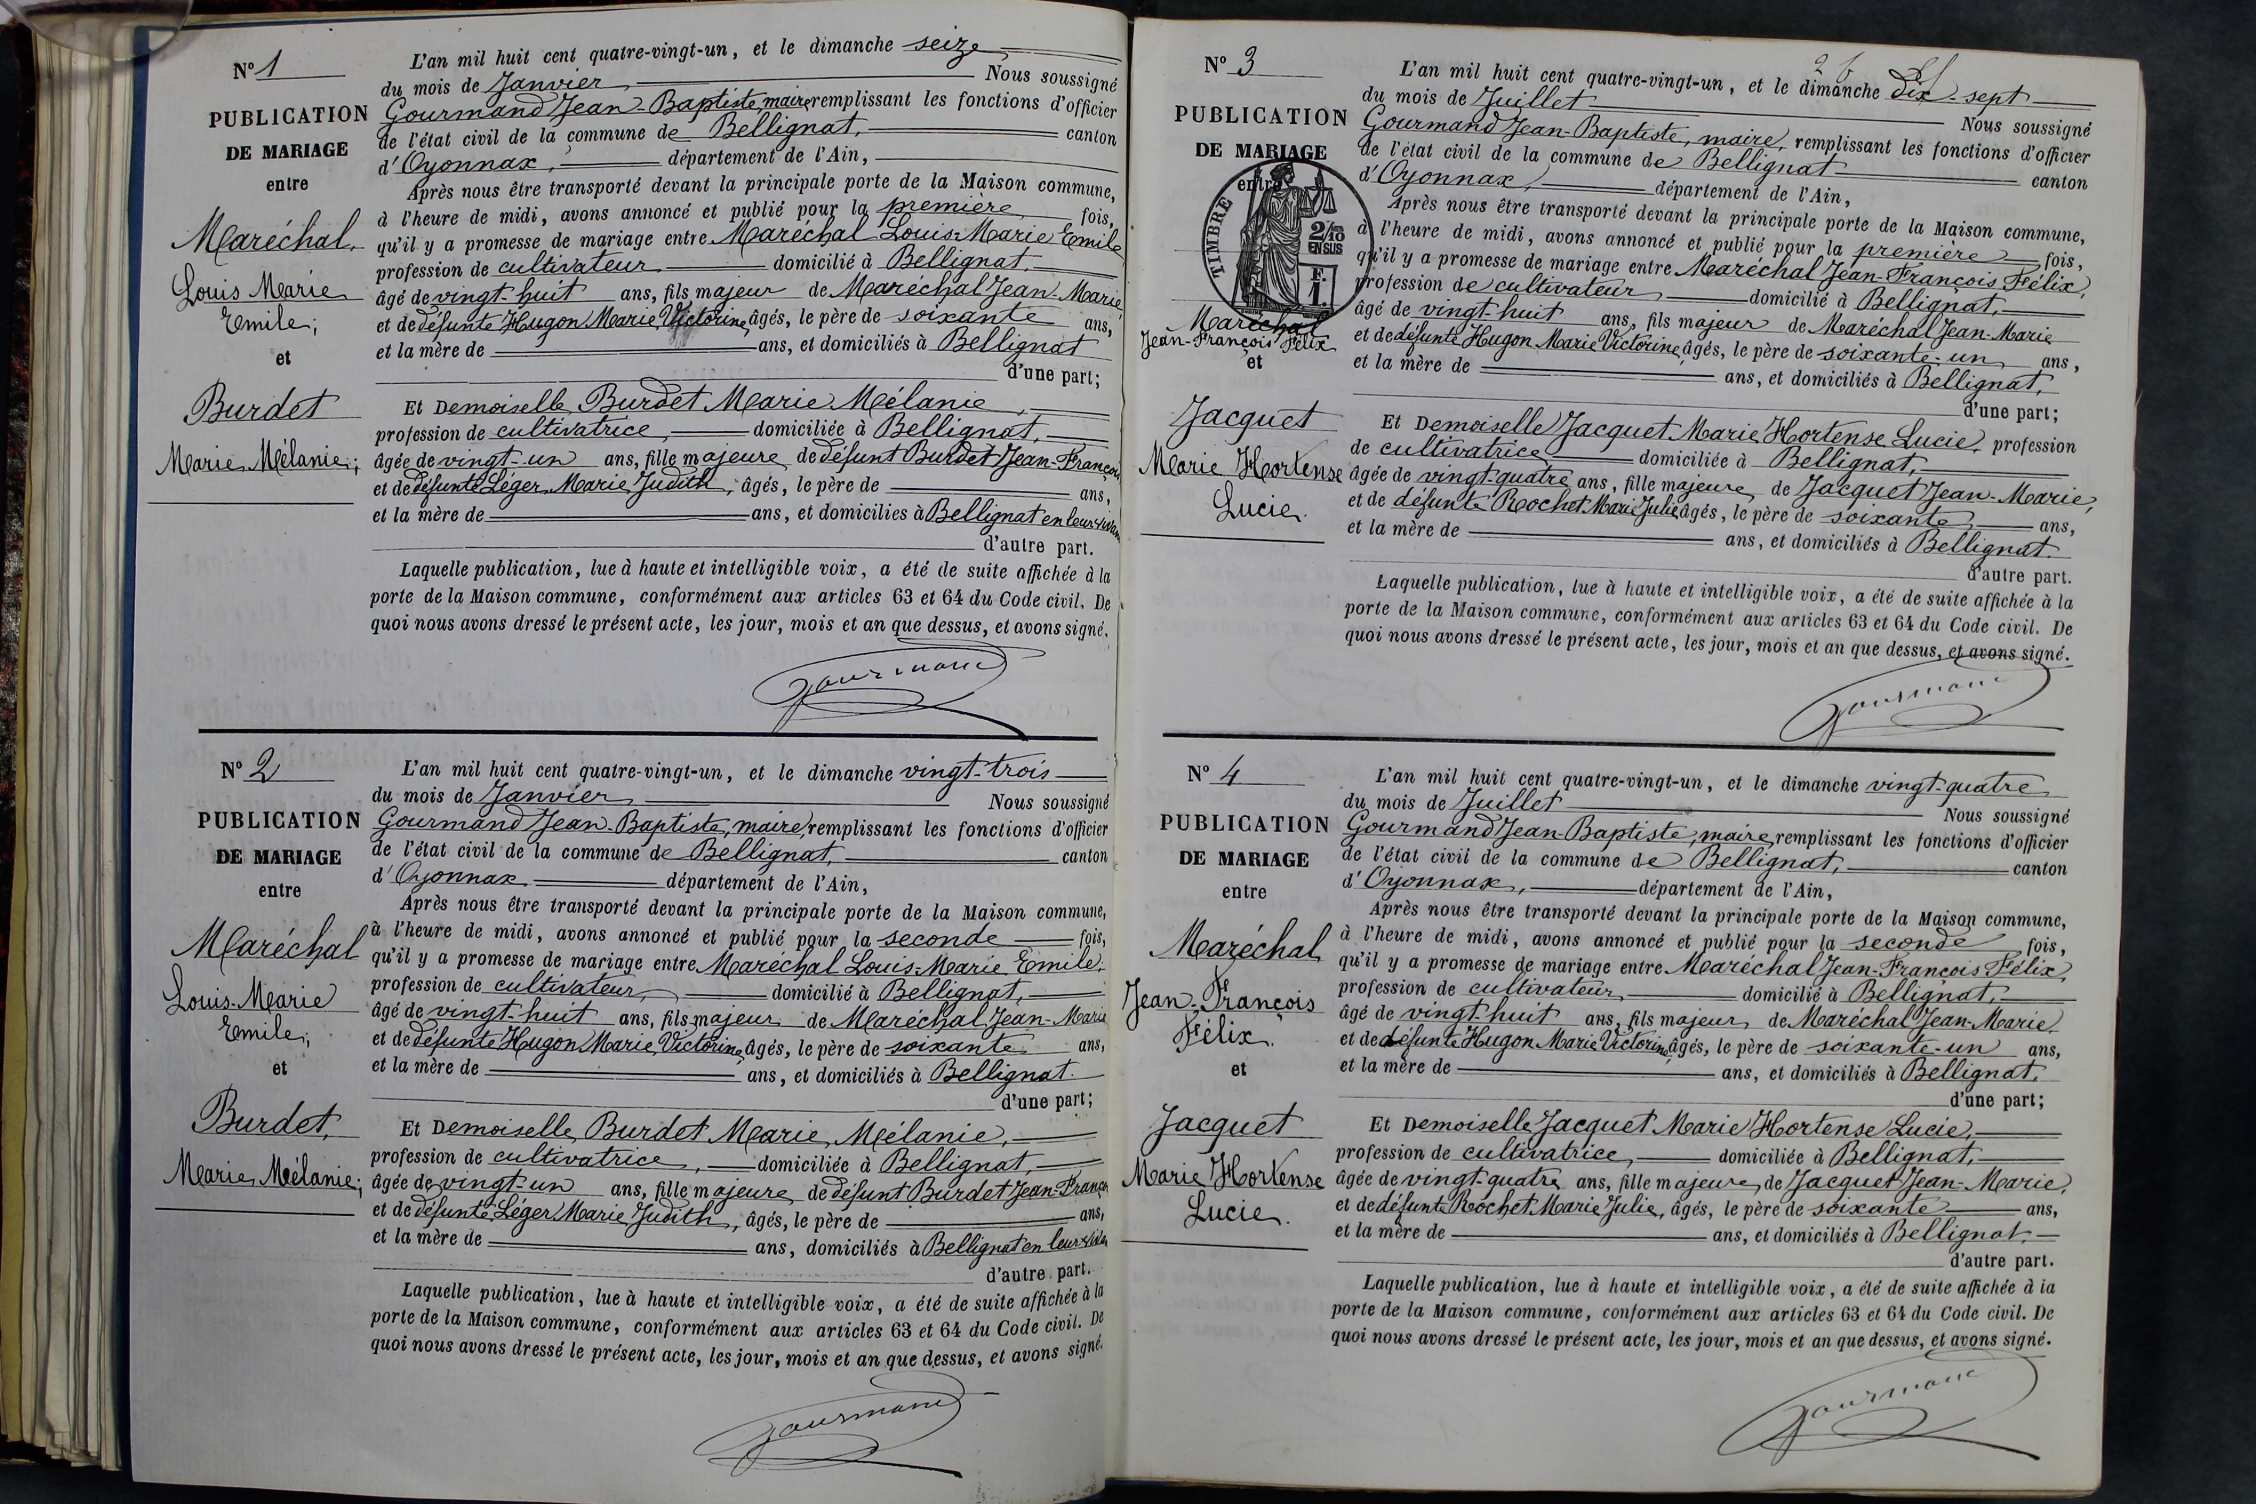 N° 1
PUBLICATION
DE MARIAGE
entre
Maréchal,
Louis Marie
Emile;
et
Burdet
Marie Mélanie;
L'an mil huit cent quatre-vingt-un, et le dimanche seize
du mois de Janvier Nous soussigné
Gourmand Jean-Baptiste, maire, remplissant les fonctions d'officier
de l'état civil de la commune de Bellignat, canton
d'Oyonnax, département de l'Ain,
Après nous être transporté devant la principale porte de la Maison commune,
à l'heure de midi, avons annoncé et publié pour la première fois,
qu'il y a promesse de mariage entre Maréchal Louis-Marie Emile
profession de cultivateur domicilié à Bellignat,
âgé de vingt-huit ans, fils majeur de Maréchal Jean-Marie,
et de défunte Hugon Marie Victorine, âgés, le père de soixante ans,
et la mère de ans, et domiciliés à Bellignat
d'une part;
Et Demoiselle Burdet Marie Mélanie,
profession de cultivatrice, domiciliée à Bellignat,
âgée de vingt-un ans, fille majeure de défunt Burdet Jean-François
et de défunte Léger Marie Judith, âgés, le père de ans,
et la mère de ans, et domiciliés à Bellignat en leur vivant
d'autre part.
Laquelle publication, lue à haute et intelligible voix, a été de suite affichée à la
porte de la Maison commune, conformément aux articles 63 et 64 du Code civil. De
quoi nous avons dressé le présent acte, les jour, mois et an que dessus, et avons signé.
Gourmand
N° 2
PUBLICATION
DE MARIAGE
entre
Maréchal
Louis-Marie
Emile;
et
Burdet,
Marie Mélanie;
L'an mil huit cent quatre-vingt-un, et le dimanche vingt-trois
du mois de Janvier Nous soussigné
Gourmand Jean-Baptiste, maire, remplissant les fonctions d'officier
de l'état civil de la commune de Bellignat, canton
d'Oyonnax département de l'Ain,
Après nous être transporté devant la principale porte de la Maison commune,
à l'heure de midi, avons annoncé et publié pour la seconde fois,
qu'il y a promesse de mariage entre Maréchal Louis-Marie Emile,
profession de cultivateur, domicilié à Bellignat,
âgé de vingt-huit ans, fils majeur de Maréchal Jean-Marie
et de défunte Hugon Marie Victorine, âgés, le père de soixante ans,
et la mère de ans, et domiciliés à Bellignat.
d'une part;
Et Demoiselle Burdet Marie Mélanie,
profession de cultivatrice, domiciliée à Bellignat,
âgée de vingt-un ans, fille majeure de défunt Burdet Jean-François
et de défunte Léger Marie Judith, âgés, le père de ans,
et la mère de ans, domiciliés à Bellignat en leur vivant
d'autre part.
Laquelle publication, lue à haute et intelligible voix, a été de suite affichée à la
porte de la Maison commune, conformément aux articles 63 et 64 du Code civil. De
quoi nous avons dressé le présent acte, les jour, mois et an que dessus, et avons signé.
Gourmand
N° 3
PUBLICATION
DE MARIAGE
entre
TIMBRE
2/10
EN SUS
F.
1.
Maréchal
Jean-François Félix
et
Jacquet
Marie Hortense
Lucie.
L'an mil huit cent quatre-vingt-un, et le dimanche dix-sept
du mois de Juillet Nous soussigné
Gourmand Jean-Baptiste, maire, remplissant les fonctions d'officier
de l'état civil de la commune de Bellignat canton
d'Oyonnax, département de l'Ain,
Après nous être transporté devant la principale porte de la Maison commune,
à l'heure de midi, avons annoncé et publié pour la première fois,
qu'il y a promesse de mariage entre Maréchal Jean-François Félix,
profession de cultivateur, domicilié à Bellignat,
âgé de vingt-huit ans, fils majeur de Maréchal Jean-Marie
et de défunte Hugon Marie Victorine, âgés, le père de soixante-un ans,
et la mère de ans, et domiciliés à Bellignat,
d'une part;
Et Demoiselle Jacquet Marie Hortense Lucie, profession
de cultivatrice domiciliée à Bellignat,
âgée de vingt-quatre ans, fille majeure de Jacquet Jean-Marie,
et de défunte Rochet Marie Julie, âgés, le père de soixante ans,
et la mère de ans, et domiciliés à Bellignat.
d'autre part.
Laquelle publication, lue à haute et intelligible voix, a été de suite affichée à la
porte de la Maison commune, conformément aux articles 63 et 64 du Code civil. De
quoi nous avons dressé le présent acte, les jour, mois et an que dessus, et avons signé.
Gourmand
N° 4
PUBLICATION
DE MARIAGE
entre
Maréchal
Jean-François
Félix.
et
Jacquet
Marie Hortense
Lucie.
L'an mil huit cent quatre-vingt-un, et le dimanche vingt-quatre
du mois de Juillet Nous soussigné
Gourmand Jean-Baptiste, maire, remplissant les fonctions d'officier
de l'état civil de la commune de Bellignat, canton
d'Oyonnax, département de l'Ain,
Après nous être transporté devant la principale porte de la Maison commune,
à l'heure de midi, avons annoncé et publié pour la seconde fois,
qu'il y a promesse de mariage entre Maréchal Jean-François Félix,
profession de cultivateur, domicilié à Bellignat,
âgé de vingt-huit ans, fils majeur de Maréchal Jean-Marie,
et de défunte Hugon Marie Victorine, âgés, le père de soixante-un ans,
et la mère de ans, et domiciliés à Bellignat,
d'une part;
Et Demoiselle Jacquet Marie Hortense Lucie,
profession de cultivatrice, domiciliée à Bellignat,
âgée de vingt-quatre ans, fille majeure de Jacquet Jean-Marie,
et de défunte Rochet Marie Julie, âgés, le père de soixante ans,
et la mère de ans, et domiciliés à Bellignat,
d'autre part.
Laquelle publication, lue à haute et intelligible voix, a été de suite affichée à la
porte de la Maison commune, conformément aux articles 63 et 64 du Code civil. De
quoi nous avons dressé le présent acte, les jour, mois et an que dessus, et avons signé.
Gourmand